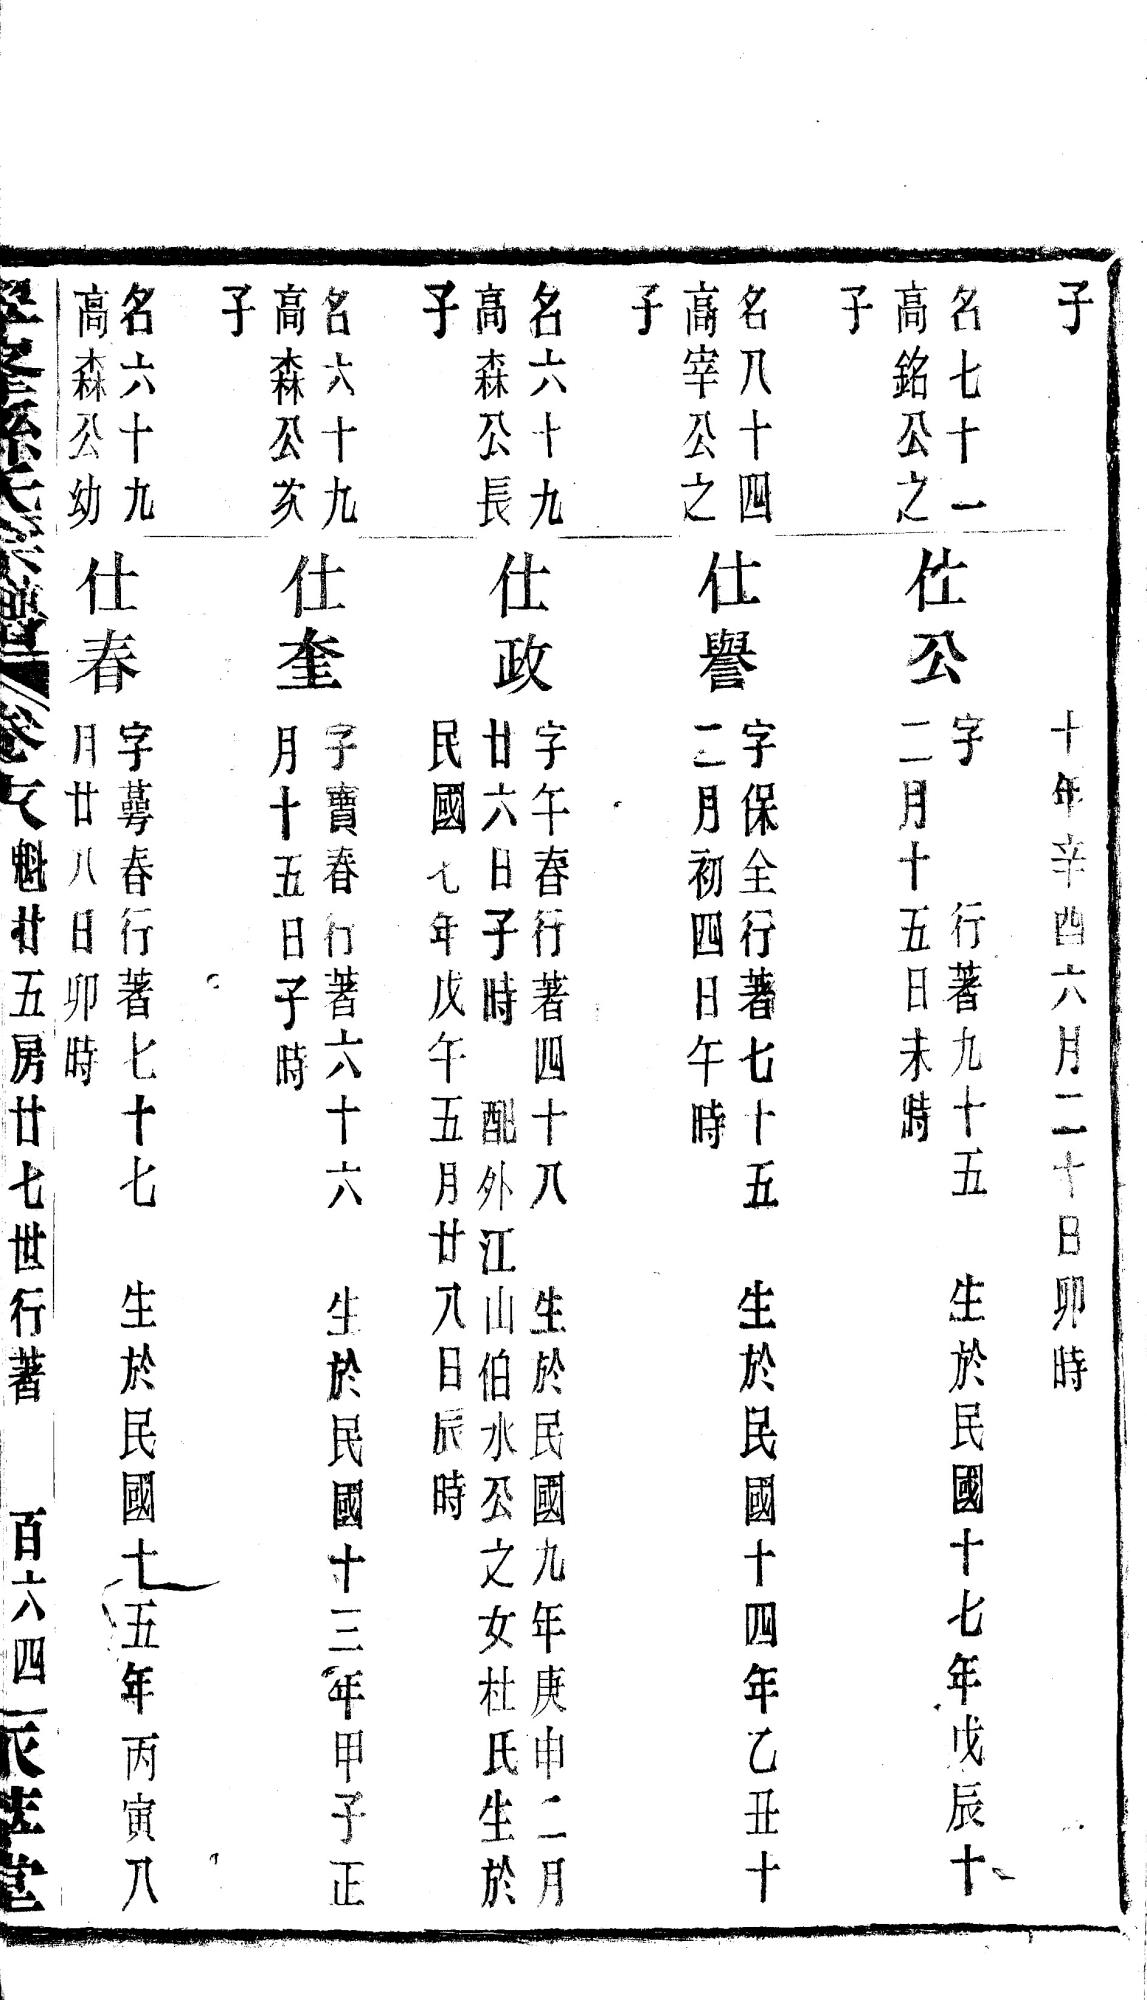 子
十年辛酉六月二十日卯時
名七十一
高銘公之
子
仕公
字　　行著九十五　生於民國十七年戊辰十
二月十五日未時
名八十四
高宰公之
子
仕譽
字保全行著七十五　生於民國十四年乙丑十
二月初四日午時
名六十九
高森公長
子
仕政
字午春行著四十八　生於民國九年庚申二月
廿六日子時　配外江山伯水公之女杜氏生於
民國七年戊午五月廿八日辰時
名六十九
高森公次
子
仕奎
字寶春行著六十六　生於民國十三年甲子正
月十五日子時
名六十九
高森公幼
仕春
字蕚春行著七十七　生於民國十五年丙寅八
月廿八日卯時
孫氏宗譜　卷　魁廿五房廿七世行著　百六四　堂